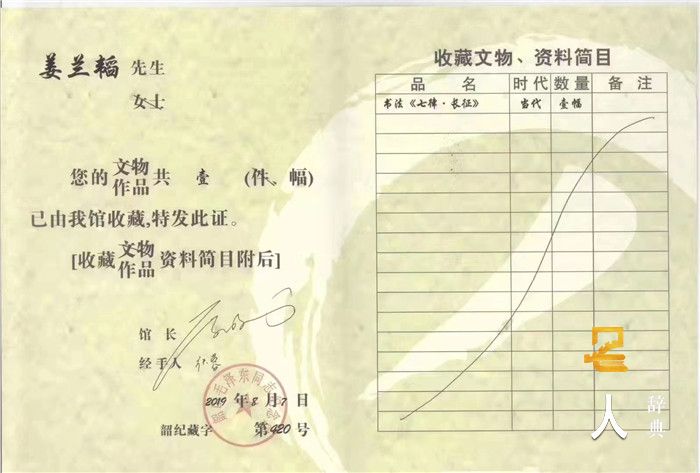 姜兰韬 先生
女士
您的 文物 作品 共 壹 (件、幅)
已由我馆收藏,特发此证。
[收藏 文物 作品 资料简目附后]
馆 长
经手人
2019 年 8 月 7 日
韶纪藏字 第 420 号
收藏文物、资料简目
品 名 时代 数量 备 注
书法《七律·长征》 当代 壹幅
毛泽东同志
人
辞典